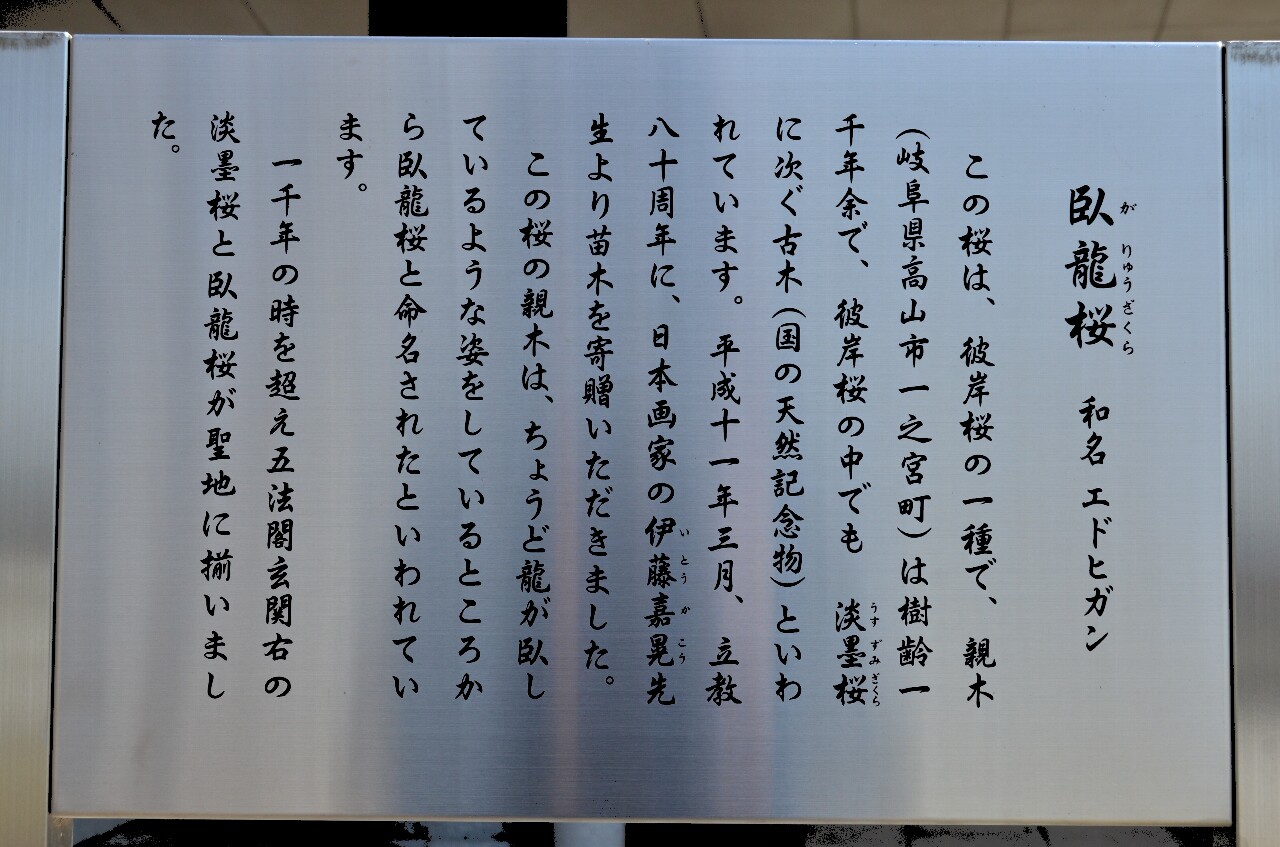 臥龍桜 和名 エドヒガン
がりゅうざくら
この桜は、彼岸桜の一種で、親木
(岐阜県高山市一之宮町)は樹齢一
千年余で、彼岸桜の中でも 淡墨桜
うすずみざくら
に次ぐ古木(国の天然記念物)といわ
れています。平成十一年三月、立教
八十周年に、日本画家の伊藤嘉晃先
いとうかこう
生より苗木を寄贈いただきました。
この桜の親木は、ちょうど龍が臥し
ているような姿をしているところか
ら臥龍桜と命名されたといわれてい
ます。
一千年の時を超え五法閣玄関右の
淡墨桜と臥龍桜が聖地に揃いまし
た。